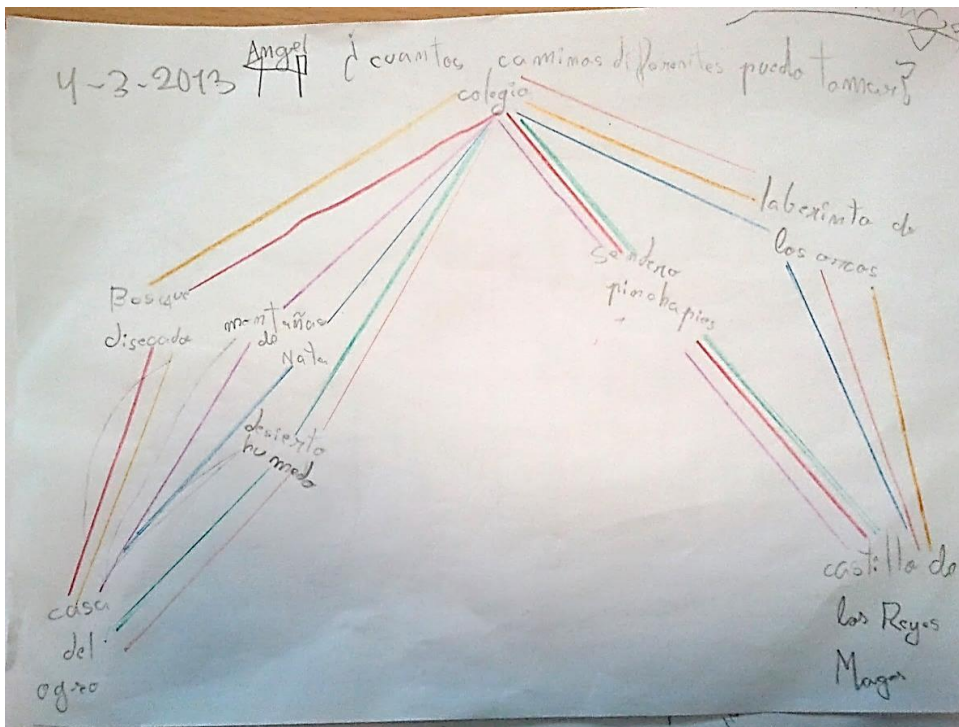 4-3-2013 Angel ¿cuantos caminos diferentes puedo tomar?
colegio
laberinto de
los orcos
Sendero
pinchapies
Bosque
disecado
montañas
de
Nata
desierto
humedo
casa
del
ogro
castillo de
los Reyes
Magos